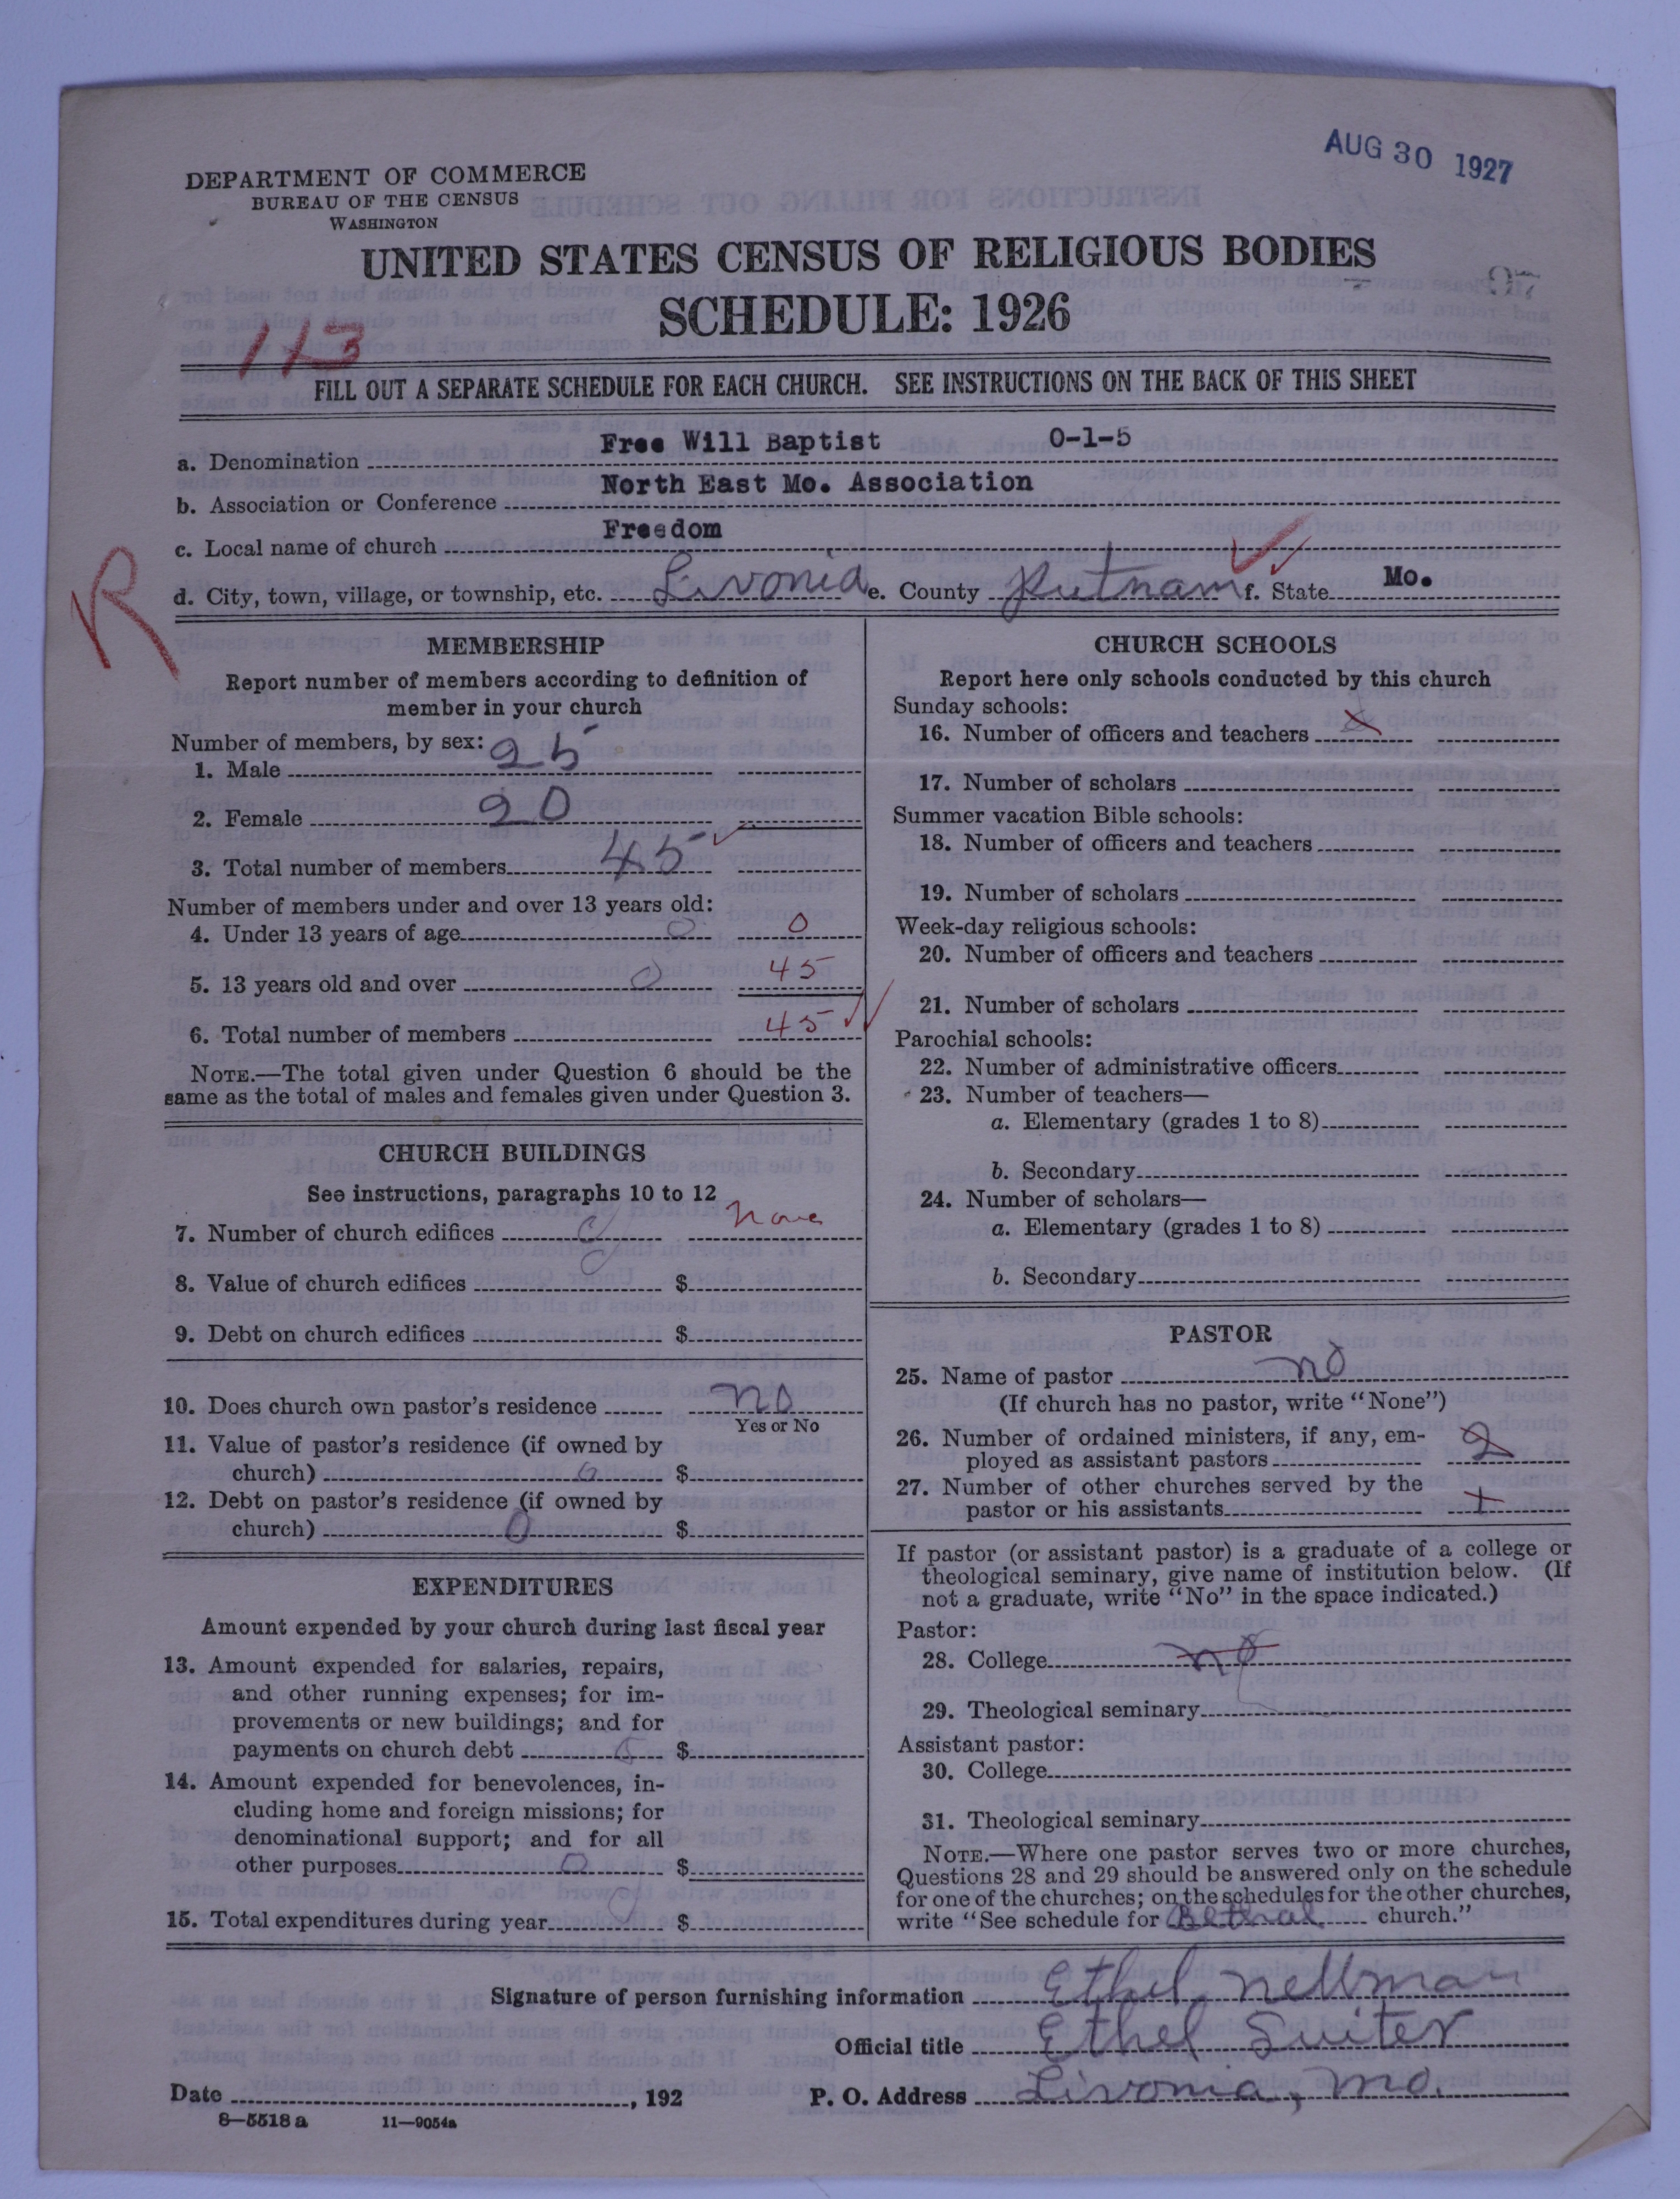 AUG 30 1927
DEPARTMENT OF COMMERCE
BUREAU OF THE CENSUS
WASHINGTON
UNITED STATES CENSUS OF RELIGIOUS BODIES
SCHEDULE: 1926
113
FILL OUT A SEPARATE SCHEDULE FOR EACH CHURCH. SEE INSTRUCTIONS ON THE BACK OF THIS SHEET
a. Denomination Free Will Baptist 0-1-5
b. Association or Conference North East Mo. Association
c. Local name of church Freedom
d. City, town, village, or township, etc. Livonia e. County Putnam f. State Mo.
R
MEMBERSHIP
Report number of members according to definition of
member in your church
Number of members, by sex:
1. Male 25
2. Female 20
3. Total number of members 45
Number of members under and over 13 years old:
4. Under 13 years of age 0 0
5. 13 years old and over 0 45
6. Total number of members 45
NOTE.—The total given under Question 6 should be the
same as the total of males and females given under Question 3.
CHURCH BUILDINGS
See instructions, paragraphs 10 to 12
7. Number of church edifices None
8. Value of church edifices $
9. Debt on church edifices $
10. Does church own pastor's residence no
Yes or No
11. Value of pastor's residence (if owned by
church) 0 $
12. Debt on pastor's residence (if owned by
church) 0 $
EXPENDITURES
Amount expended by your church during last fiscal year
13. Amount expended for salaries, repairs,
and other running expenses; for im-
provements or new buildings; and for
payments on church debt $
14. Amount expended for benevolences, in-
cluding home and foreign missions; for
denominational support; and for all
other purposes 0 $
15. Total expenditures during year 0 $
CHURCH SCHOOLS
Report here only schools conducted by this church
Sunday schools:
16. Number of officers and teachers
17. Number of scholars
Summer vacation Bible schools:
18. Number of officers and teachers
19. Number of scholars
Week-day religious schools:
20. Number of officers and teachers
21. Number of scholars
Parochial schools:
22. Number of administrative officers
23. Number of teachers—
a. Elementary (grades 1 to 8)
b. Secondary
24. Number of scholars—
a. Elementary (grades 1 to 8)
b. Secondary
PASTOR
25. Name of pastor no
(If church has no pastor, write "None")
26. Number of ordained ministers, if any, em-
ployed as assistant pastors 2
27. Number of other churches served by the
pastor or his assistants
If pastor (or assistant pastor) is a graduate of a college or
theological seminary, give name of institution below. (If
not a graduate, write "No" in the space indicated.)
Pastor:
28. College no
29. Theological seminary
Assistant pastor:
30. College
31. Theological seminary
NOTE.—Where one pastor serves two or more churches,
Questions 28 and 29 should be answered only on the schedule
for one of the churches; on the schedules for the other churches,
write "See schedule for Bethal church."
Signature of person furnishing information Ethel Nellman
Official title Ethel Suiter
Date , 192 P. O. Address Livonia, Mo.
8—5518 a 11—9054a